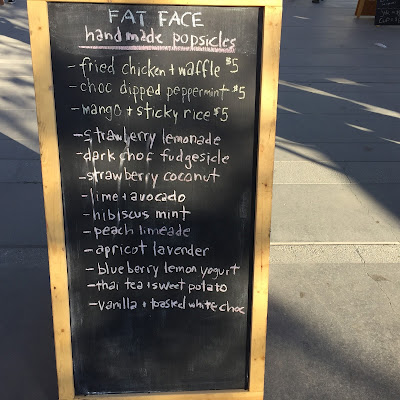 FAT FACE
handmade popsicles
- fried chicken + waffle $5
- choc dipped peppermint $5
- mango + sticky rice $5
- strawberry lemonade
- dark choc fudgesicle
- strawberry coconut
- lime + avocado
- hibiscus mint
- peach limeade
- apricot lavender
- blueberry lemon yogurt
- thai tea + sweet potato
- vanilla + toasted white choc